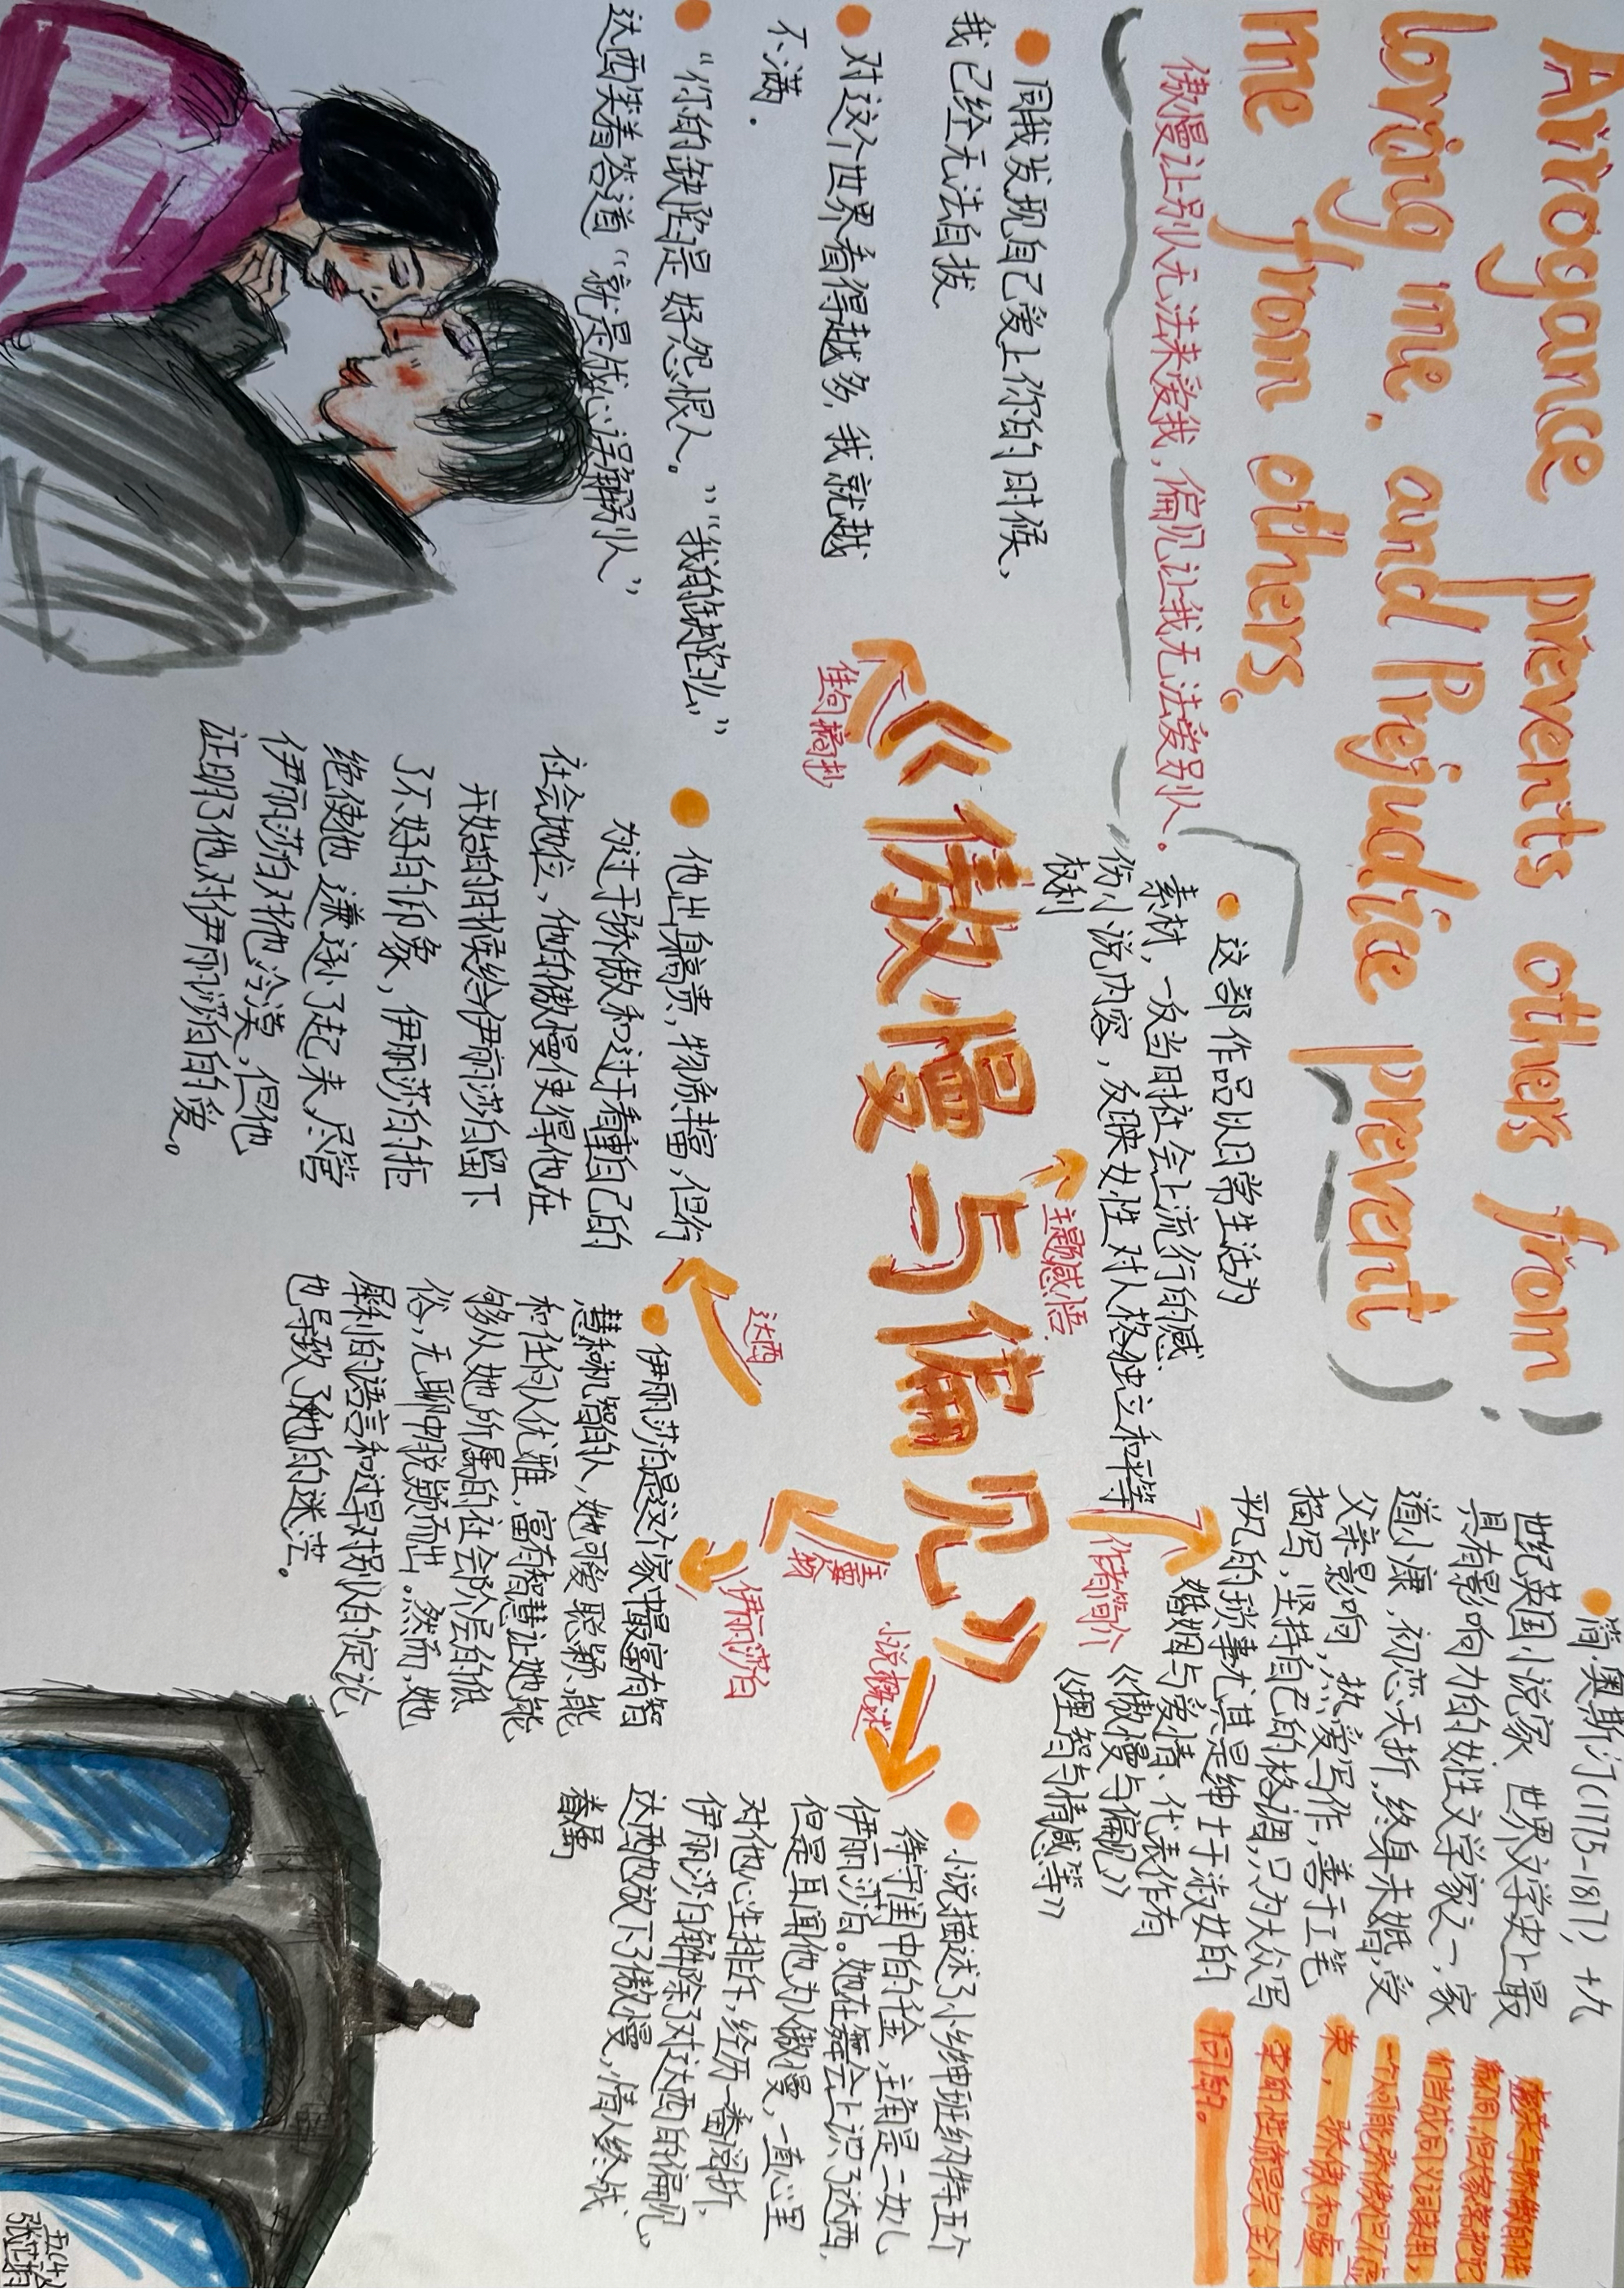 Arrogance prevents others from
loving me, and Prejudice prevent
me from others.
傲慢让别人无法来爱我,偏见让我无法爱别人。
同我发现自己爱上你的时候,
我已经无法自拔
对这个世界看得越多,我就越
不满.
“你的缺陷是好怨恨人。”“我的缺陷么”
达西笑着答道“就是成心误解别人”
佳句摘抄
《傲慢与偏见》
这部作品以日常生活为
素材,一反当时社会上流行的感
伤小说内容,反映女性对人格独立和平等
权利
主题感悟
简.奥斯汀(1775-1817)十九
世纪英国小说家 世界文学史上最
具有影响力的女性文学家之一,家
道小康,初恋夭折,终身未婚,受
父亲影响,热爱写作,善于工笔
描写,坚持自己的格调,只为大众写
平凡的琐事尤其是绅士于淑女的
婚姻与爱情、代表作有
《傲慢与偏见》
《理智与情感等》
作者简介
虚荣与骄傲的性
一个人可能骄傲但不虚
荣,骄傲和虚
荣的性质是完全不
同的。
达西
他出身高贵,物质丰富,但行
为过于骄傲和过于看重自己的
社会地位,他的傲慢使得他在
开始的时候给伊丽莎白留下
了不好的印象,伊丽莎白的拒
绝使他谦逊了起来,尽管
伊丽莎白对他冷漠,但他
证明了他对伊丽莎白的爱。
主要
人物
伊丽莎白
伊丽莎白是这个家中最富有智
慧和机智的人,她可爱聪颖,能
和任何人优雅,富有智慧让她能
够从她所属的社会阶层的低
俗,无聊中脱颖而出。然而,她
犀利的语言和过早对拐人的定论
也导致了她的迷茫。
小说概述
小说描述了小绅班纳特五个
待字闺中的千金,主角是二女儿
伊丽莎白。她在舞会上识了达西,
但是耳闻他为人傲慢,一直心里
对他心生排斥,经历一番周折,
伊丽莎白解除了对达西的偏见,
达西也放下了傲慢,情人终成
眷属